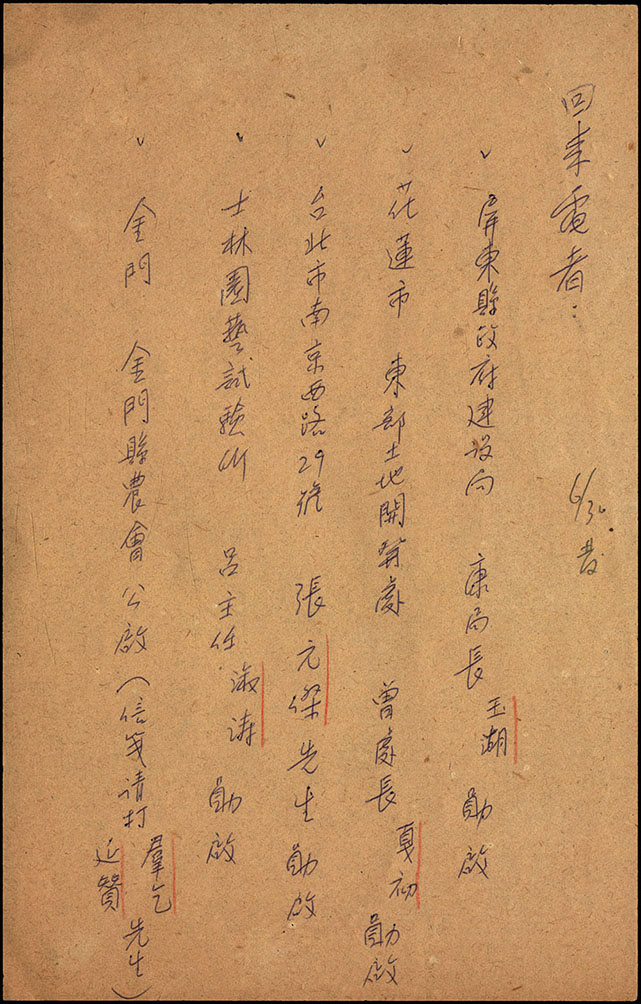 回来電者：
6/30 發
✓ 屏東縣政府建設局 康局長玉湖 勛啟
✓ 花蓮市 東部土地開發處 曾處長夏初 勛啟
✓ 台北市南京西路29號 張元傑先生 勛啟
✓ 士林園藝試驗所 呂主任淑濤 勛啟
✓ 金門 金門縣農會 公啟（信笺请打 羣乞 延贊 先生）